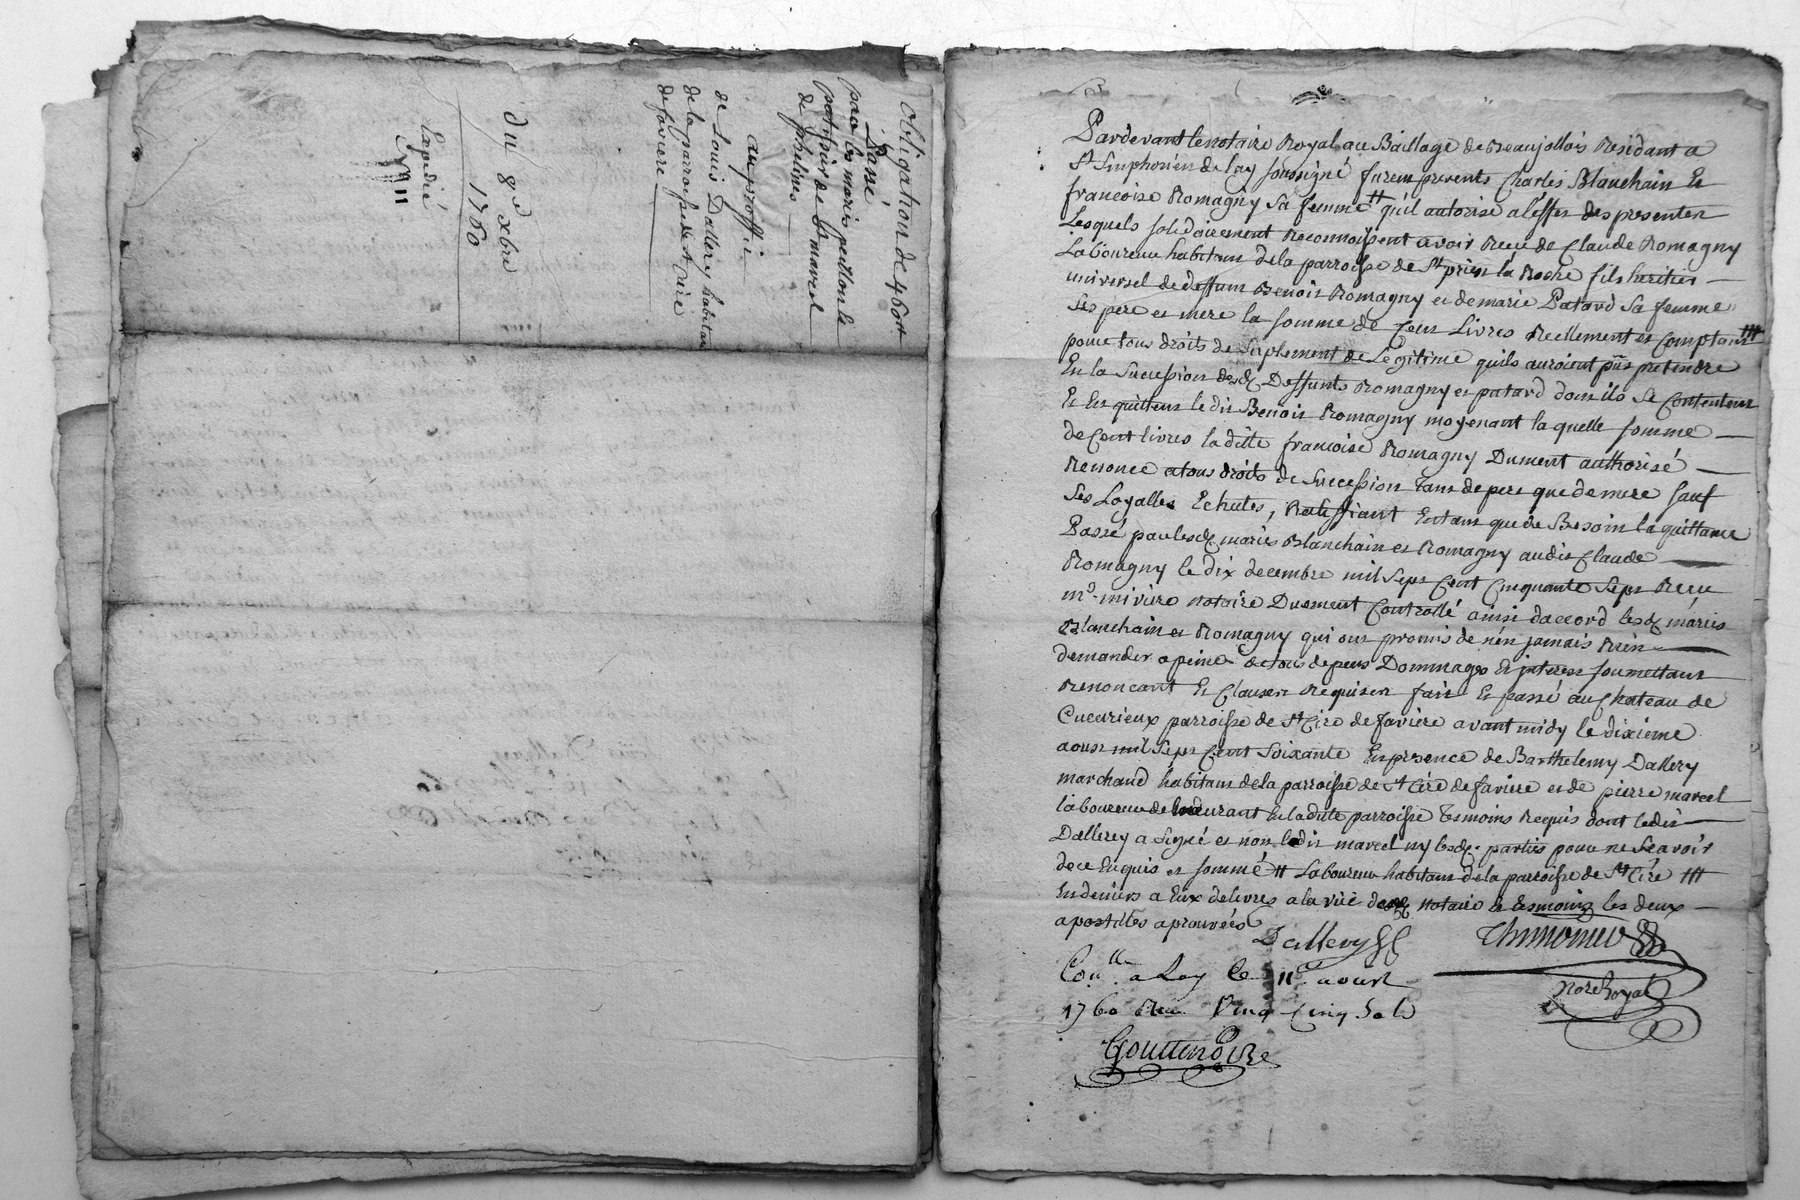 Obligation de 460tt
Passé
par les mariés
de St marcel
de phelines
au proffit
de Louis Dallery habitant
de la parroisse de St Cire
de favière
du 8e xbre
1760
Expedié
Pardevant le notaire Royal au Baillage de Beaujollois Residant a
St Simphorien de lay soussigné furent presents Charles Blanchain Et
francoise Romagny Sa femme tt quil autorise a leffet des presentes
Lesquels solidairement Reconnoissent avoir Receu de Claude Romagny
Laboureur habitant de la parroisse de St priest la Roche fils heritier
universel de deffunt Benoit Romagny et de marie Patard Sa femme
Ses pere et mere la somme de Cent Livres Reellement et Comptant ttt
pour tous droits de Suplement de Legitime quils auroient pû pretendre
En la Sucession desd. Deffunts Romagny et patard dont ils Se Contentent
Et En quittent le dit Benoit Romagny moyenant la quelle somme
de Cent livres la ditte francoise Romagny Dument authorisé
Renonce atous droits de Sucession tant de pere que de mere sauf
Ses Loyalles Echutes, Ratiffiant Entant que de Besoin la quittance
Passé par lesd. mariés Blanchain et Romagny audit Claude
Romagny le dix decembre mil Sept Cent Cinquante Sept Receu
me mivière notaire Duement Controllé ainsi daccord lesd. mariés
Blanchain et Romagny qui ont promis de nèn jamais Rièn
demander apeine de tous depens Dommages Et interets soumettant
Renoncant Et Clauses Requises fait Et passé au Chateau de
Cucurieux parroisse de St Cire de favière avant midy le dixième
aoust mil Sept Cent Soixante En presence de Barthelemy Dallery
marchand habitant de la parroisse de St Cire de favière et de pierre marcel
laboureur de En la ditte parroisse temoins Requis dont ledit
Dallerey a Signé et non ledit marcel ny lesd. parties pour ne Scavoir
de ce Enquis et sommé tt Laboureur habitant de la parroisse de St Cire ttt
En deniers a Eux delivres a la vüe notaire et tesmoins les deux
apostilles aprouvées
Dallery
Conlle a Lay le 11e aoust
1760 Receu Vingt Cinq Sols
Nore Royal
Gouttenoire